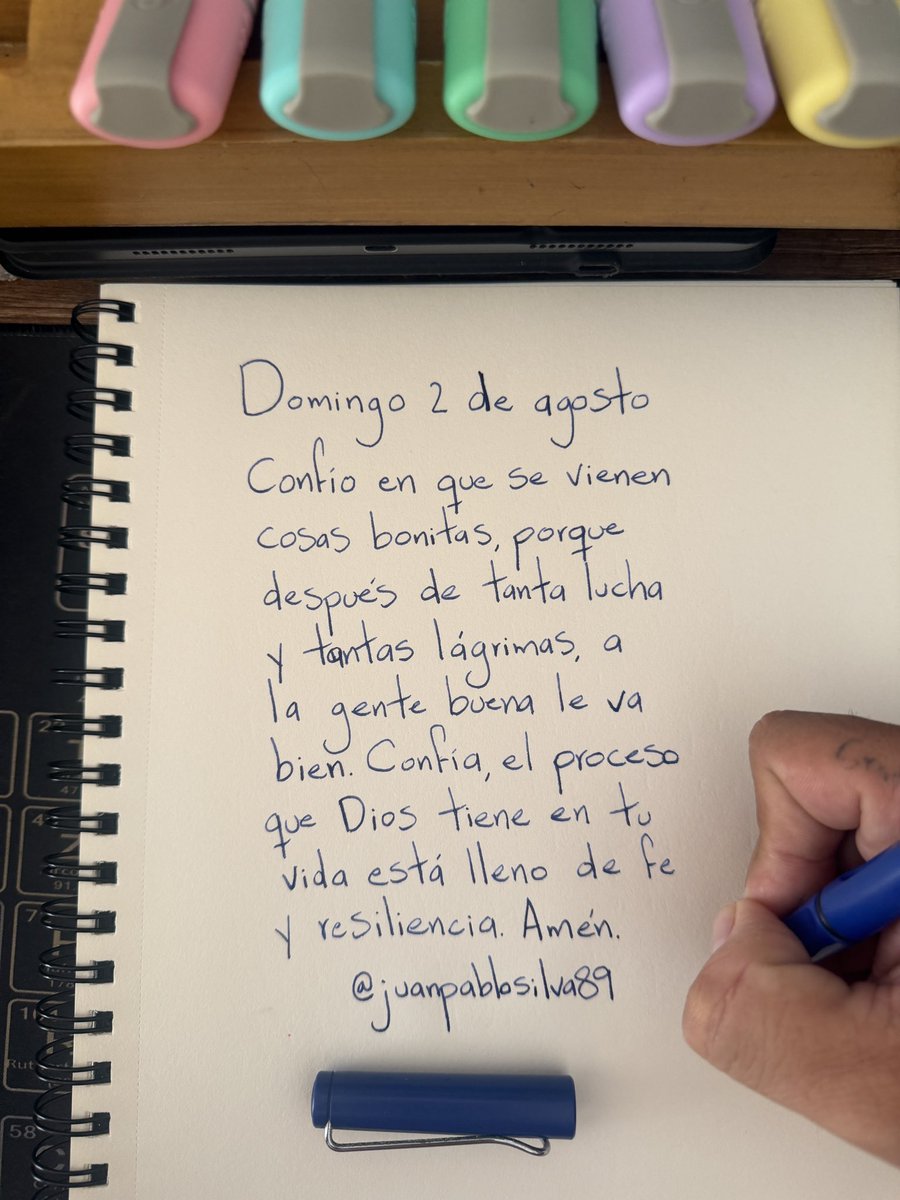 Domingo 2 de agosto
Confío en que se vienen
cosas bonitas, porque
después de tanta lucha
y tantas lágrimas, a
la gente buena le va
bien. Confía, el proceso
que Dios tiene en tu
vida está lleno de fe
y resiliencia. Amén.
@juanpablosilva89
58